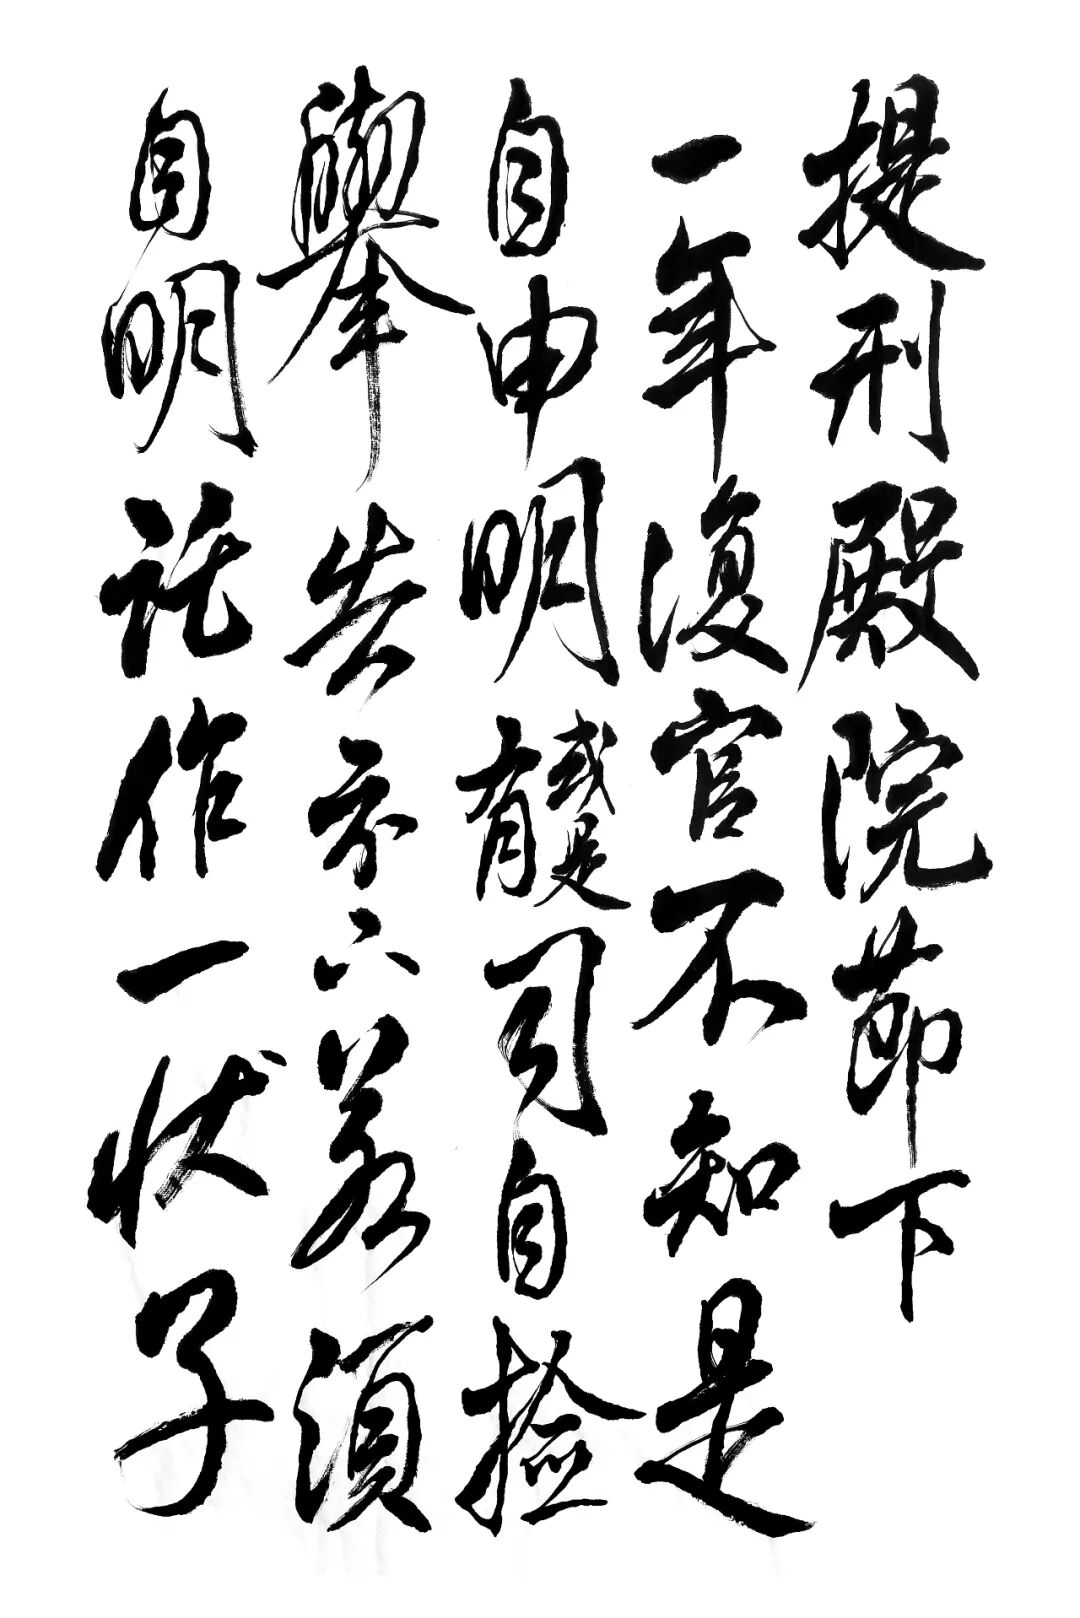 提刑殿院節下
一年復官不知是
自申明或是有司自撿
舉告示下若須
自明託作一狀子